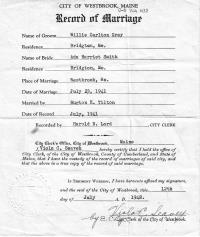 CITY OF WESTBROOK, MAINE
Record of Marriage
Name of Groom Willis Carlton Gray
Residence Bridgton, Me.
Name of Bride Ada Harriet Smith
Residence Bridgton, Me.
Place of Marriage Westbrook, Me.
Date of Marriage July 25, 1941
Married by E. Tilton
Date of Record, July, 1941
Recorded by Harold B. Lord CITY CLERK
City Clerk's Office, City of Westbrook, Maine
I, hereby certify that I hold the office of
City Clerk, of the City of Westbrook, County of Cumberland, and State of
Maine, that I have the custody of the record of marriages of said city, and
that the above is a true copy of the record of said marriage.
IN TESTIMONY WHEREOF, I have hereunto affixed my signature,
and the seal of the City of Westbrook, this 12th
day of July A. D. 1948.
City Clerk of the City of Westbrook.